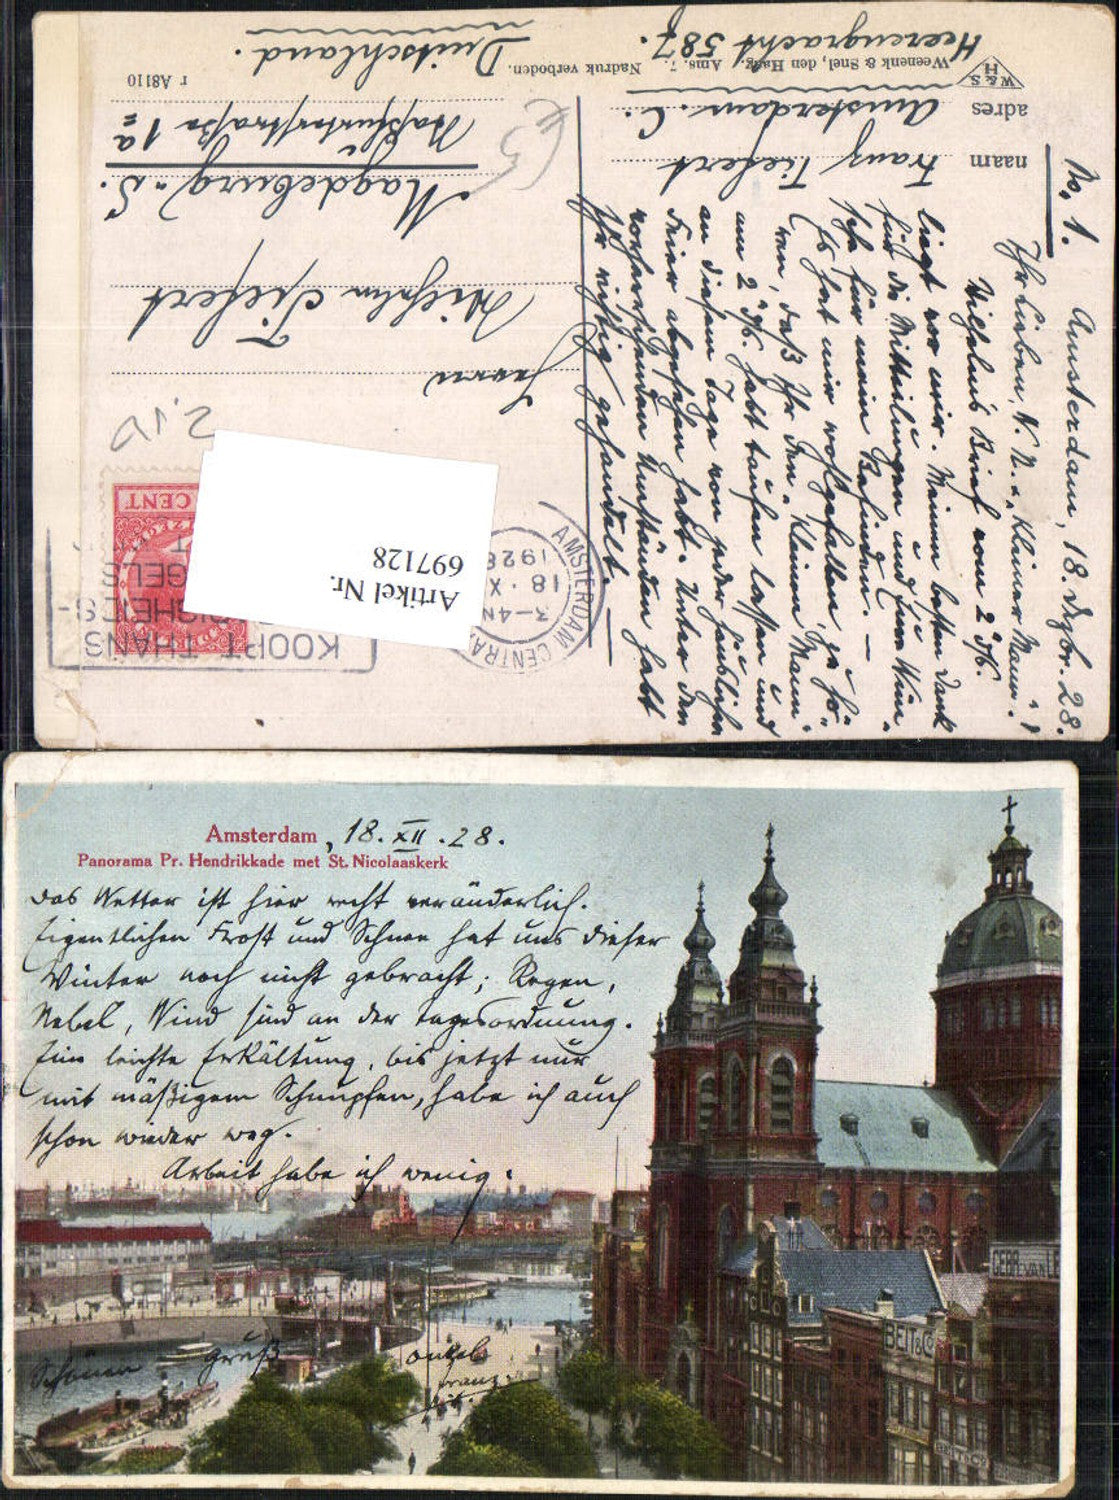 No. 1.
Amsterdam, 18. Dezbr. 28.
Ihr Lieben, N. N. u. "Kleiner Mann"!
Wilhelms Brief vom 2. ds.
liegt vor mir. Meinen besten Dank
für die Mitteilungen und Eure Wün-
sche für mein Befinden. —
Es hat mir wohlgefallen zu hö-
ren, daß Ihr den "Kleinen Mann"
am 2. ds. habt taufen lassen und
an diesem Tage von jeder häuslichen
Feier abgesehen habt. Unter den
vorherrschenden Umständen habt
Ihr richtig gehandelt. —
naam Franz Tiefert
adres Amsterdam. C.
Heerengracht 587.
W & S.
H
Weenenk & Snel, den Haag. Ams. 7. Nadruk verboden.
r A8110
Herrn
Wilhelm Tiefert
Magdeburg - S.
Staßfurterstraße 1a
Deutschland.
€5
CENT
KOOPT THANS
AMSTERDAM CENTRAA
3-4N
18.X
1928
Artikel Nr.
697128
Amsterdam, 18. XII. 28.
Panorama Pr. Hendrikkade met St. Nicolaaskerk
Das Wetter ist hier recht veränderlich.
Eigentlichen Frost und Schnee hat uns dieser
Winter noch nicht gebracht; Regen,
Nebel, Wind sind an der Tagesordnung.
Eine leichte Erkältung, bis jetzt nur
mit mäßigem Schnupfen, habe ich auch
schon wieder weg.
Arbeit habe ich wenig.
Schönen Gruß
Onkel
Franz
BEIT & Co
GEBR. VAN LE